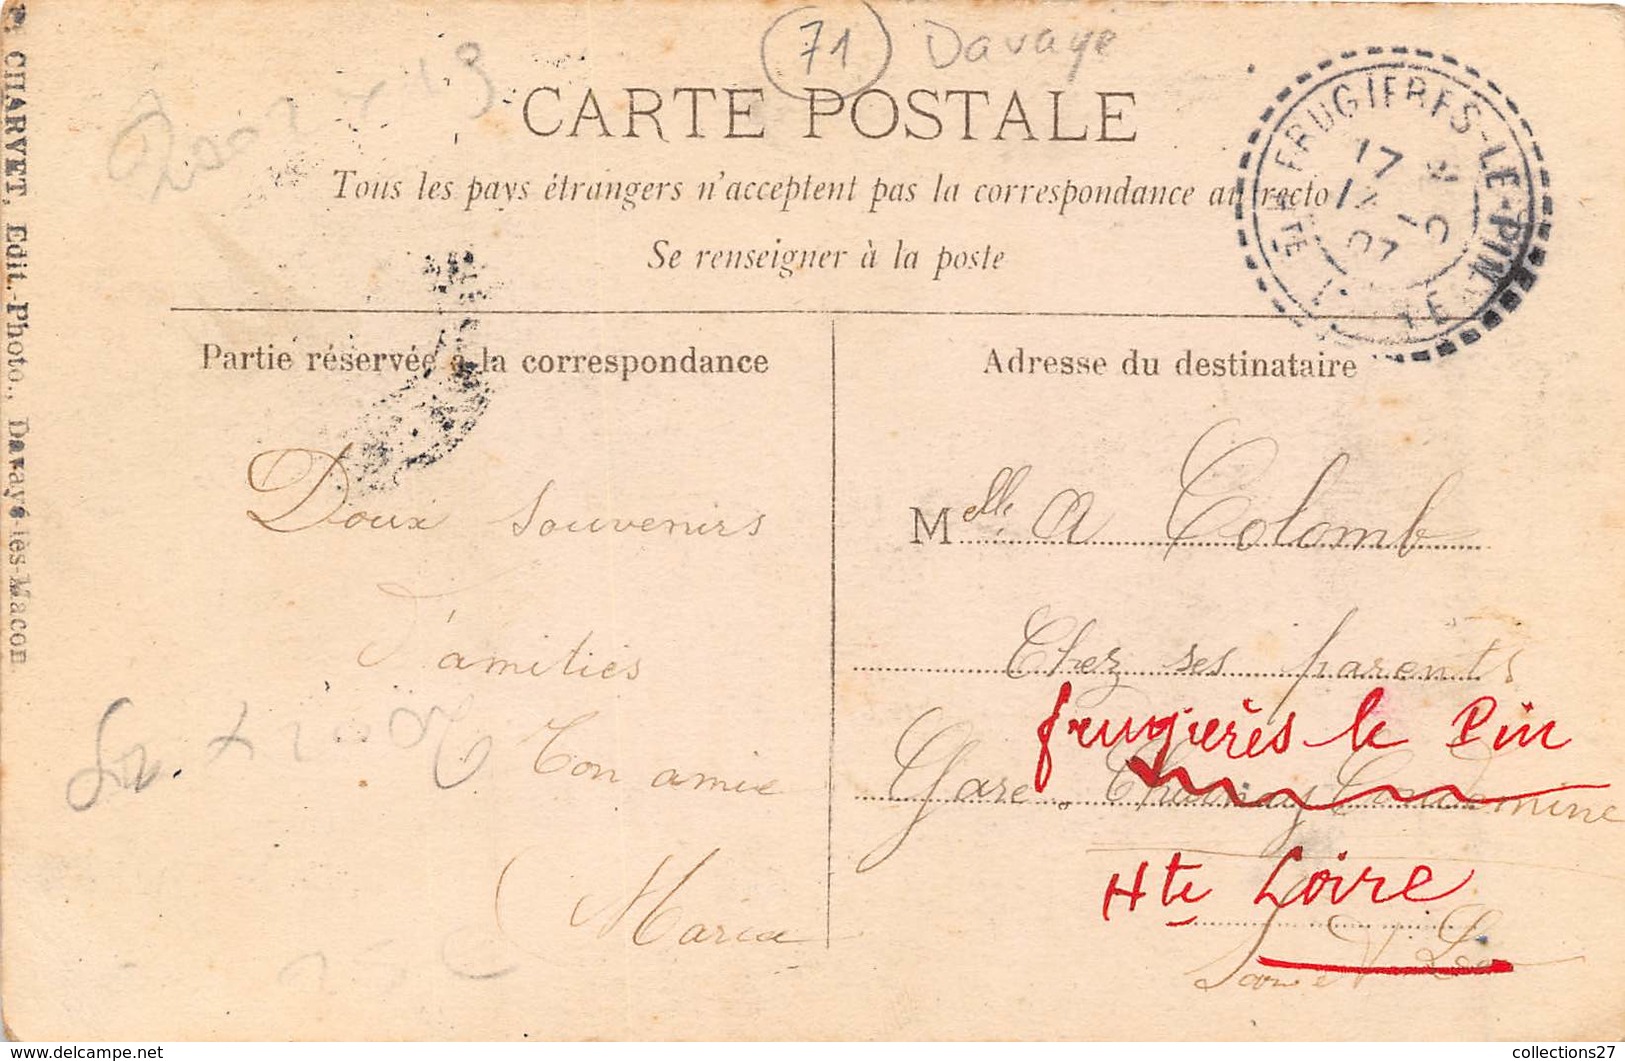 71 Davayé
CARTE POSTALE
Tous les pays étrangers n'acceptent pas la correspondance au recto
Se renseigner à la poste
FRUGIERES-LE-PIN
17
07
Partie réservée à la correspondance
Adresse du destinataire
Doux souvenirs
d'amitiés
Ton amie
Maria
Melle A Colomb
Chez ses parents
frugières le Pin
Gare. Condemine
Hte Loire
P. CHARVET, Edit.-Photo., Davayé-lès-Macon
collections27